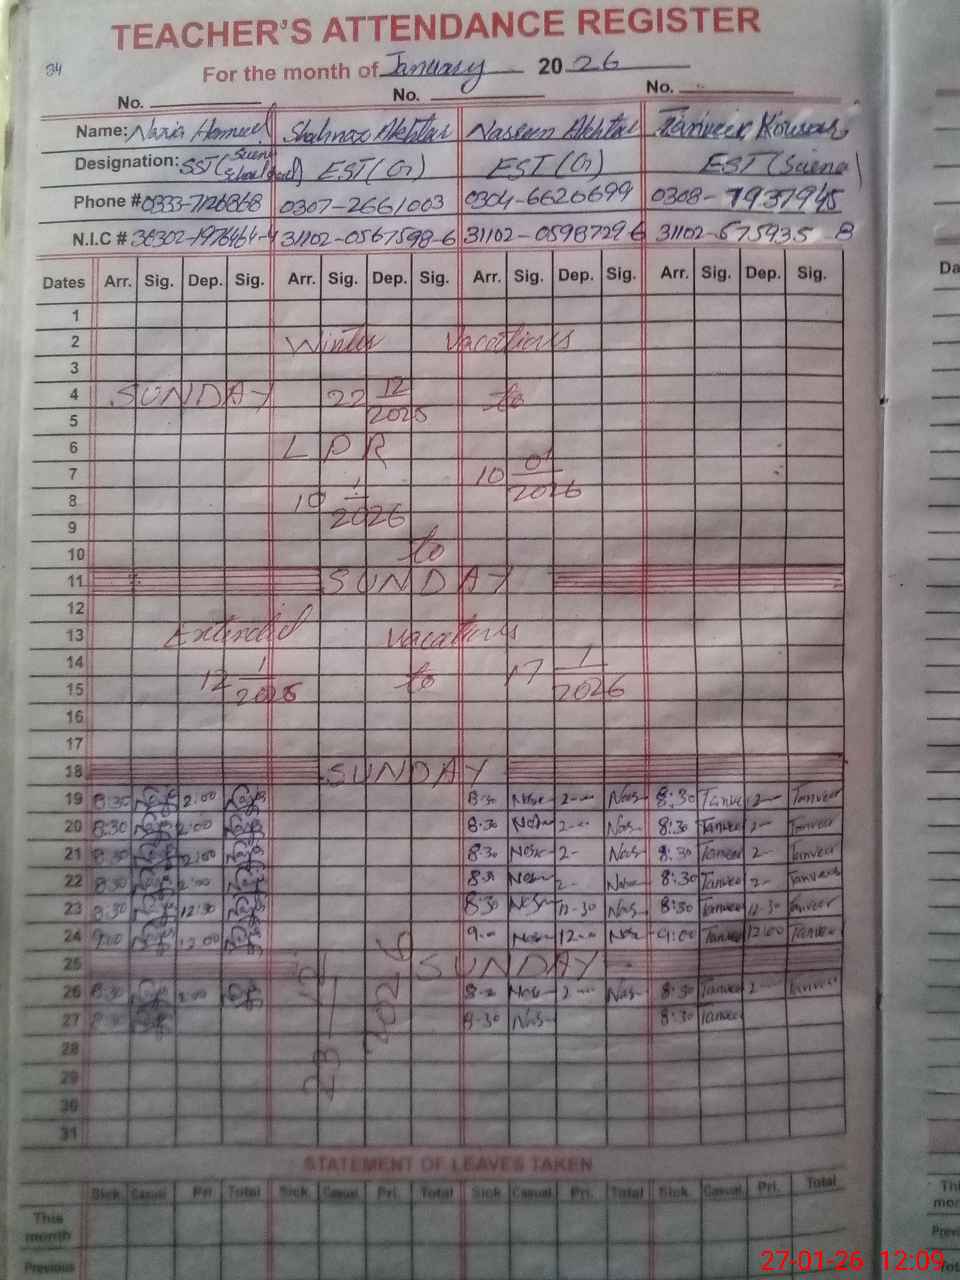 TEACHER'S ATTENDANCE REGISTER
34
For the month of January 20 26
No. No. No.
Name: Shahnaz Akhtar Naseem Akhtar Tanveer Kousar
Designation: SST (Science EST (G) EST (G) EST (Science)
Phone # 0333-7126868 0307-2661003 0304-6620699 0308-7937945
N.I.C # 36302-1976464-4 31102-0567598-6 31102-0598729 6 31102-675935 8
Dates Arr. Sig. Dep. Sig. Arr. Sig. Dep. Sig. Arr. Sig. Dep. Sig. Arr. Sig. Dep. Sig.
1
2 Winter Vacations
3
4 SUNDAY 22 12 to
5 2025
6 LPR
7 10 01
8 10 1 2026
9 2026
10 to
11 SUNDAY
12
13 Extended Vacations
14 1 1
15 12 2026 to 17 2026
16
17
18 SUNDAY
19 8:30 2:00 8:30 2- Nas 8:30 Tanveer 2- Tanveer
20 8:30 2:00 8:30 2- Nas 8:30 Tanveer 2- Tanveer
21 8:30 2:00 8:30 2- Nas 8:30 Tanveer 2- Tanveer
22 8:30 2:00 2- 8:30 Tanveer 2- Tanveer
23 8:30 12:30 8:30 12-30 Nas 8:30 Tanveer 12-30 Tanveer
24 9:00 12:00 9- 12- 9:00 Tanveer 12:00 Tanveer
25 SUNDAY
26 8:30 2:00 2- Nas 8:30 Tanveer 2- Tanveer
27 8:30 8-30 Nas 8:30 Tanveer
28
29
30
31
23 12 2026
STATEMENT OF LEAVES TAKEN
Sick Casual Pri Total Sick. Casual Pri. Total Sick Casual Pri. Total Sick. Casual Pri. Total
This month
Previous
27-01-26 12:09